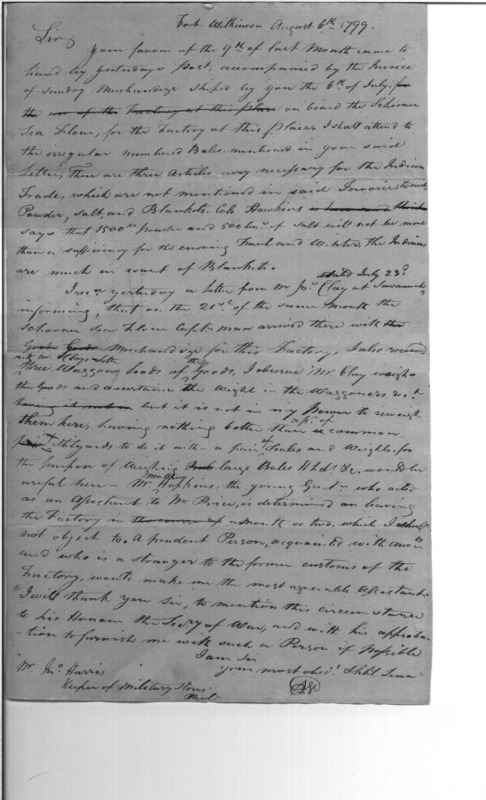 Fort Wilkinson August 6th 1799.
Sir
Your favour of the 9th of last Month came to
hand by yesterdays Post, accompanied by the Invoice
of sundry Merchandize shiped by you the 6th of July, for
the use of the Factory at this place on board the Schooner
Sea Flour, for the Factory at this place. I shall attend to
the irregular numbered Bales mentioned in your said
Letter, there are three Articles very necessary for the Indian
Trade, which are not mentioned in said Invoice, to wit,
Powder, salt and Blankets. Colo Hawkins
says that 1500 lbs powder and 500 bus. of salt will not be more
than a sufficiency for the ensuing Fall and Winter, the Indians
are much in want of Blankets.
dated July 23d
I recd yesterday a letter from Mr Jos. Clay at Savannah,
informing, that on the 21st of the same Month the
Schooner Sea Flour Captn Man arrived there with the
Goods Merchandize for this Factory, I also received
with Mr Clays letter
three Waggons loads of the Goods, I observe Mr Clay weighs
the Goods and ascertains the Weight in the Waggoners rect.
but it is not in my Power to reweigh
them here, having nothing better than a pr. of common
Stilyards to do it with - a pair of Scales and Weights for
the purpose of Weighing large Bales Hhds &c, would be
useful here - Mr Matthew Hopkins, the young Gentn who acted
as an Assistant to Mr Price, is determined on leaving
the Factory in a Month or two, which I shall
not object to. A prudent Person, acquainted with accots
and who is a stranger to the former customs of the
Factory, would make me the most agreeable Assistant.
I will thank you Sir, to mention this circumstance
to his Honour the Secry of War, and with his approba-
-tion to furnish me with such a Person if possible
I am Sir
your most obedt Hble Serva
Mr Jno Harris
Keeper of Military Stores
Phil.